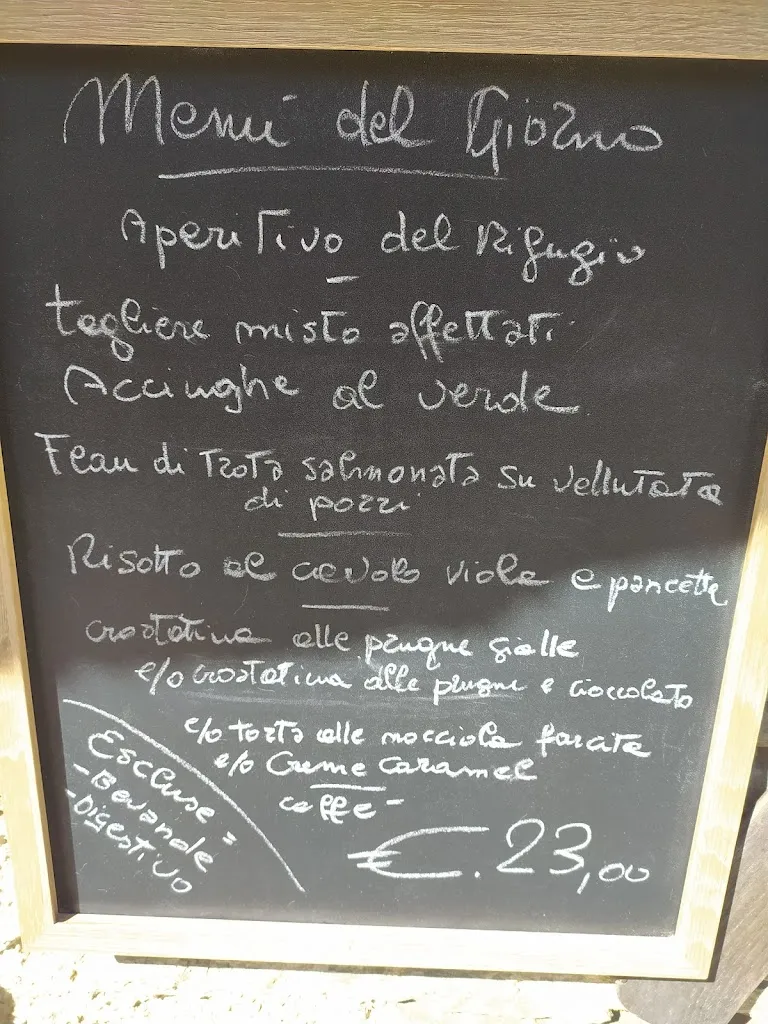 Menù del Giorno
Aperitivo del Rifugio
Tagliere misto affettati
Acciughe al verde
Flan di Trota salmonata su vellutata
di porri
Risotto al cavolo viola e pancetta
crostatina alle prugne gialle
e/o crostatina alle prugne e cioccolato
e/o torta alle nocciole farcita
e/o Creme caramel
caffè
€. 23,00
Escluse =
- Bevande
- Digestivo